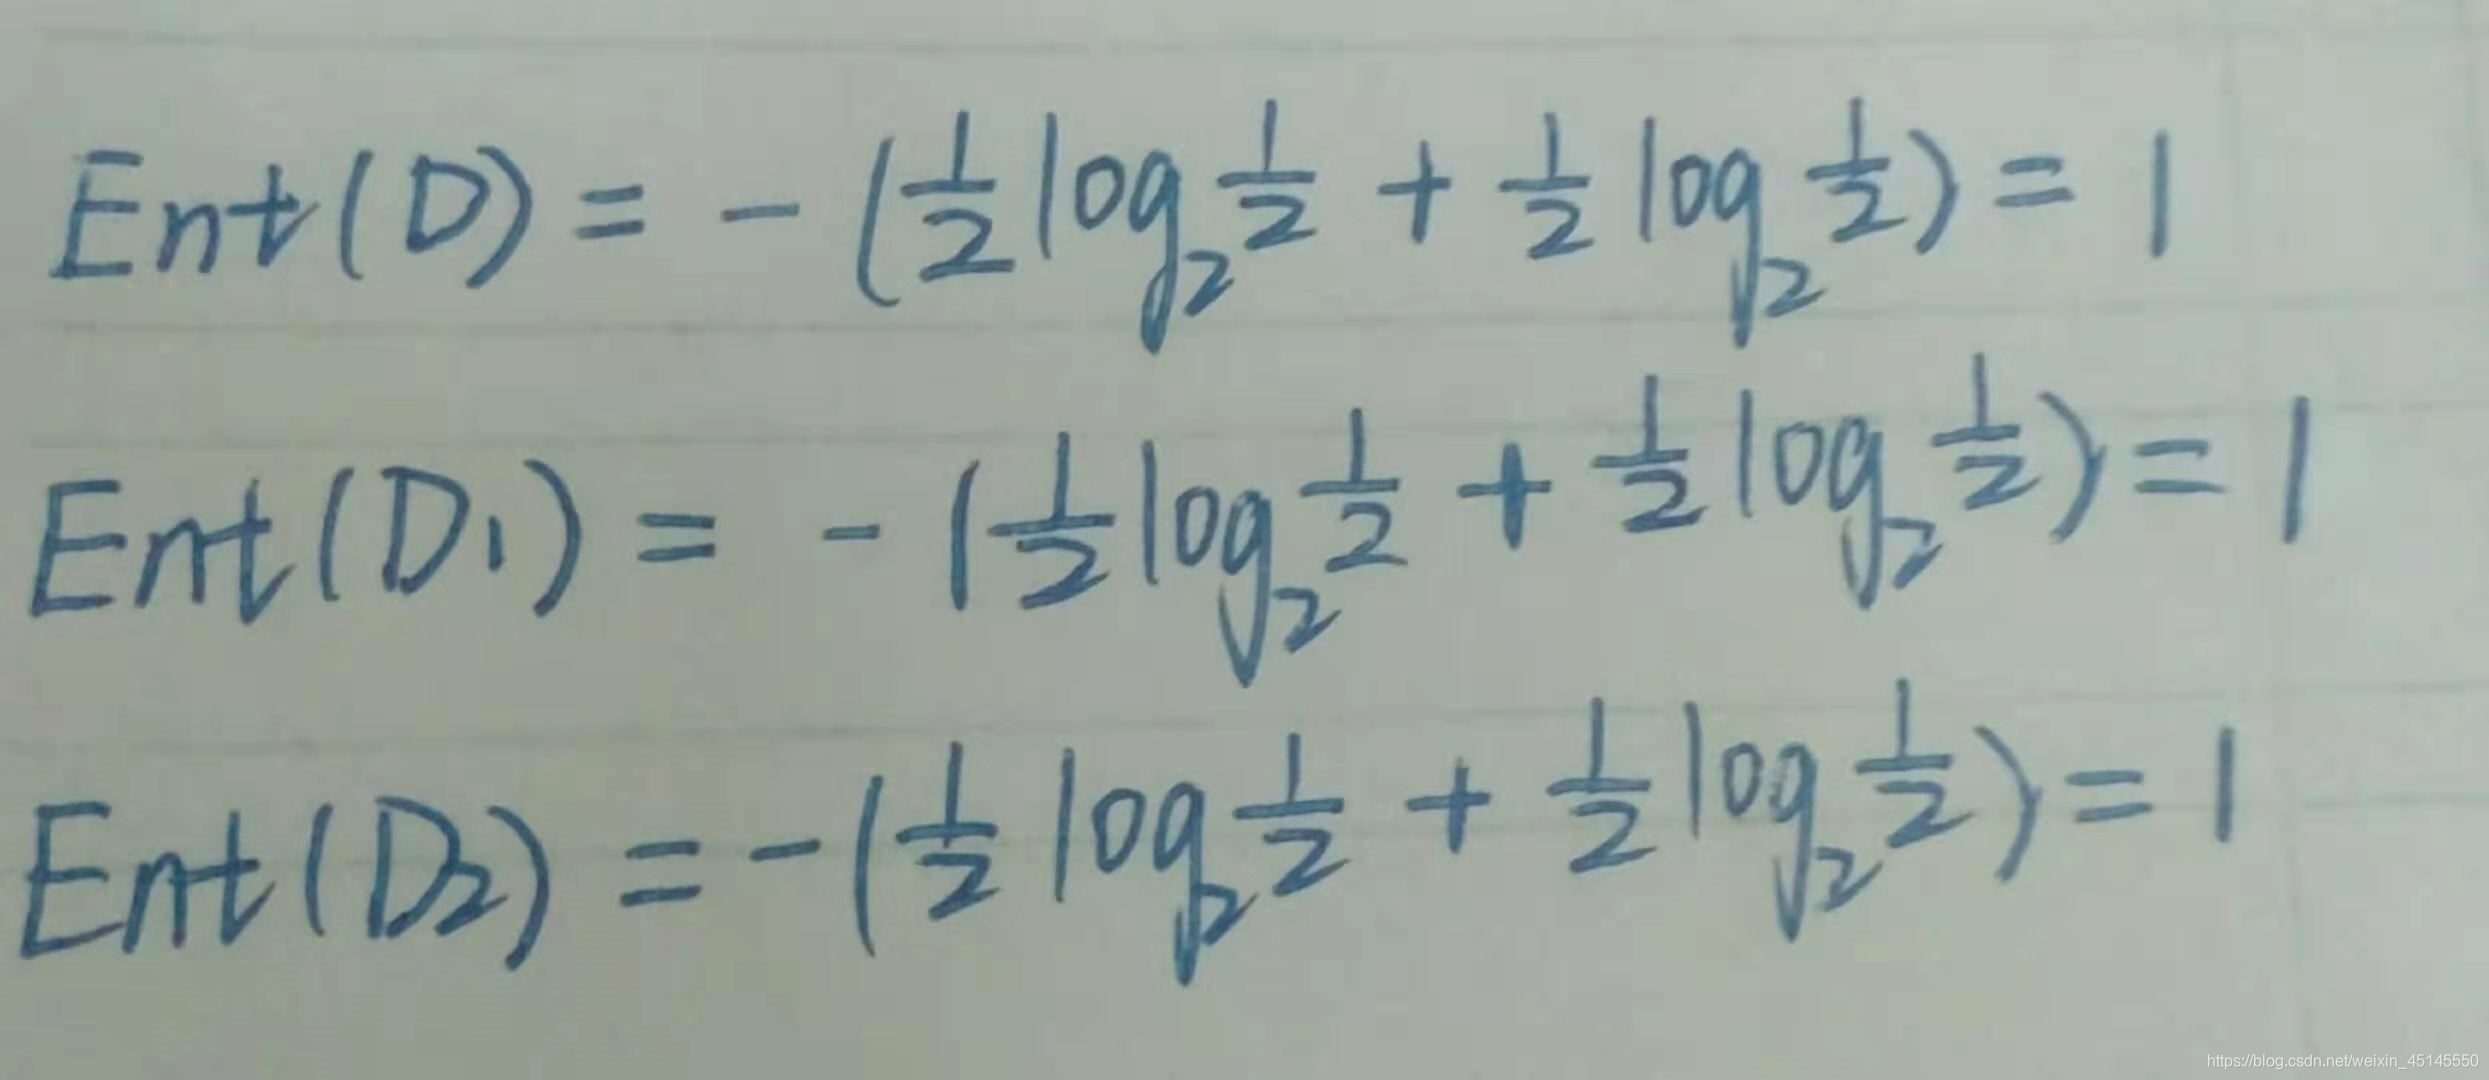 Ent(D) = - (1/2 log₂ 1/2 + 1/2 log₂ 1/2) = 1
Ent(D₁) = - (1/2 log₂ 1/2 + 1/2 log₂ 1/2) = 1
Ent(D₂) = - (1/2 log₂ 1/2 + 1/2 log₂ 1/2) = 1
https://blog.csdn.net/weixin_45145550